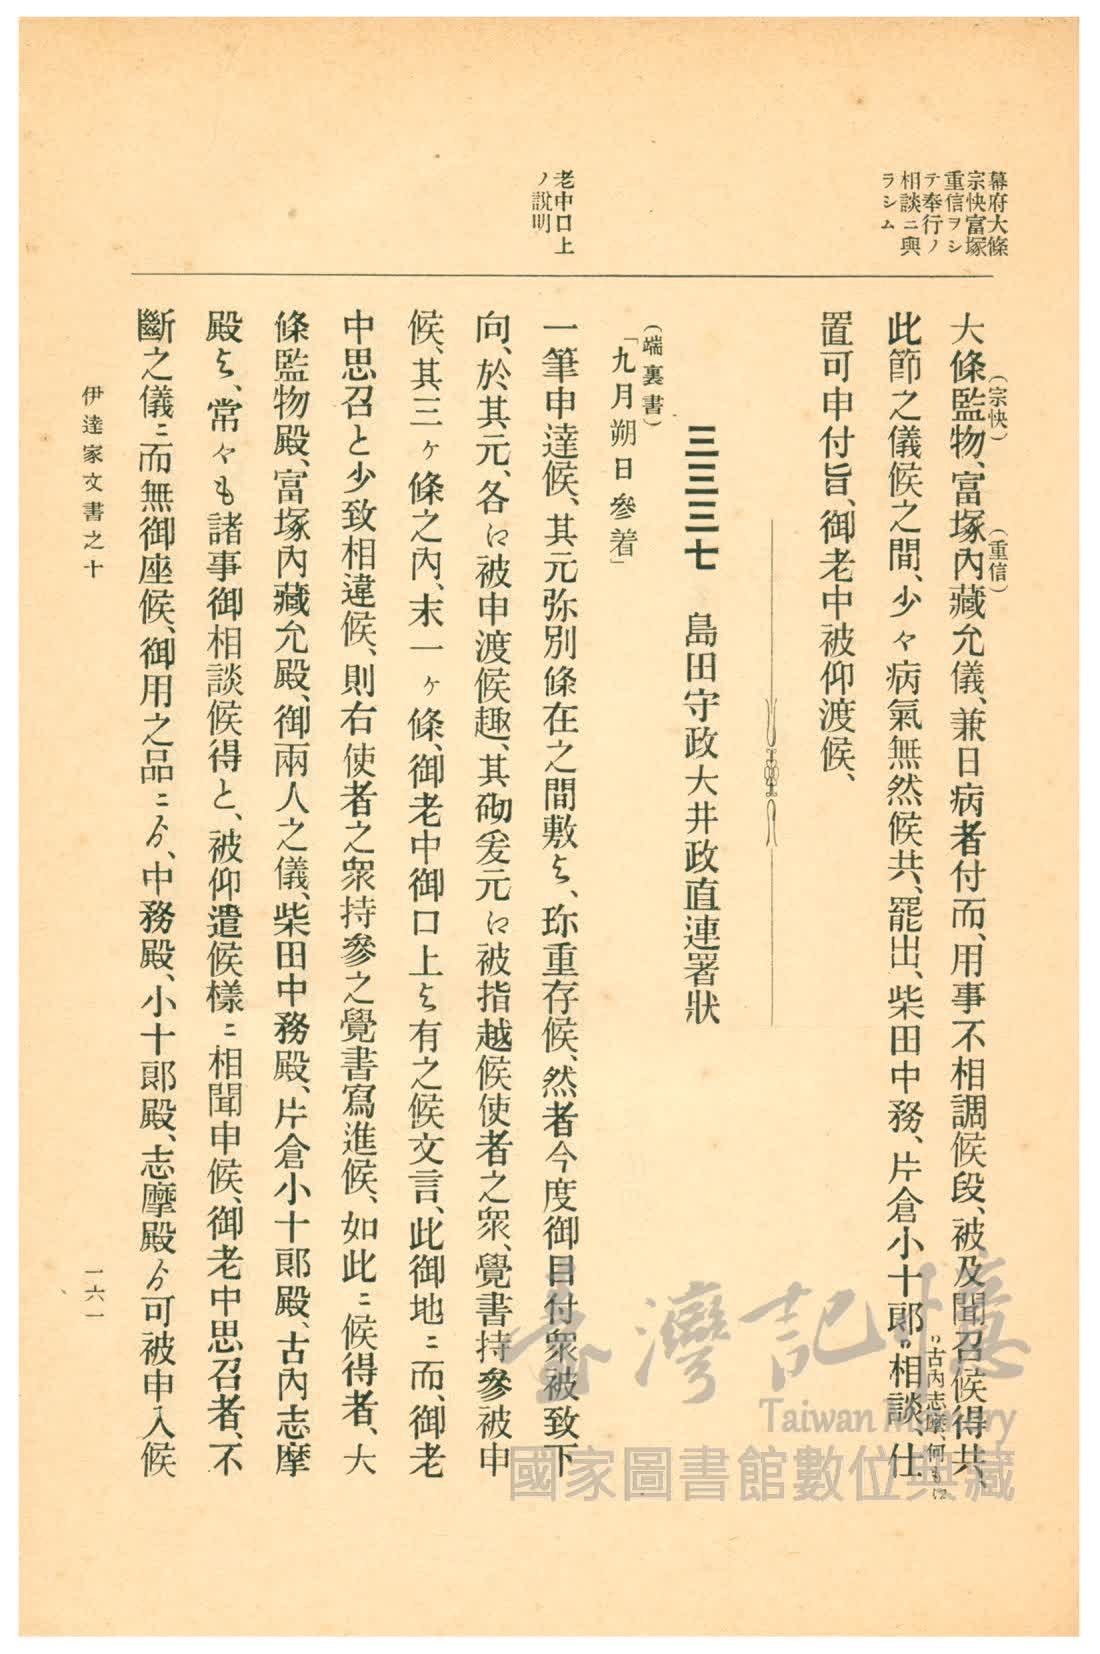 幕府大條
宗快富塚
重信ヲシ
テ奉行ノ
相談ニ與
ラシム
老中口上
ノ說明
(宗快)
(重信)
大條監物、富塚內藏允儀、兼日病者付而、用事不相調候段、被及聞召候得共、
此節之儀候之間、少々病氣無然候共、罷出、柴田中務、片倉小十郎相談、仕
古內志摩、何も
置可申付旨、御老中被仰渡候、
三三三七 島田守政大井政直連署狀
(端裏書)
「九月朔日參着」
一筆申達候、其元弥別條在之間敷与、珎重存候、然者今度御目付衆被致下
向、於其元、各江被申渡候趣、其砌爰元江被指越候使者之衆、覺書持參被申
候、其三ヶ條之內、末一ヶ條、御老中御口上与有之候文言、此御地ニ而、御老
中思召と少致相違候、則右使者之衆持參之覺書寫進候、如此ニ候得者、大
條監物殿、富塚內藏允殿、御兩人之儀、柴田中務殿、片倉小十郎殿、古內志摩
殿与、常々も諸事御相談候得と、被仰遣候樣ニ相聞申候、御老中思召者、不
斷之儀ニ而無御座候、御用之品ニゟ、中務殿、小十郎殿、志摩殿ゟ可被申入候
伊達家文書之十
一六一
臺灣記憶
Taiwan Memory
國家圖書館數位典藏